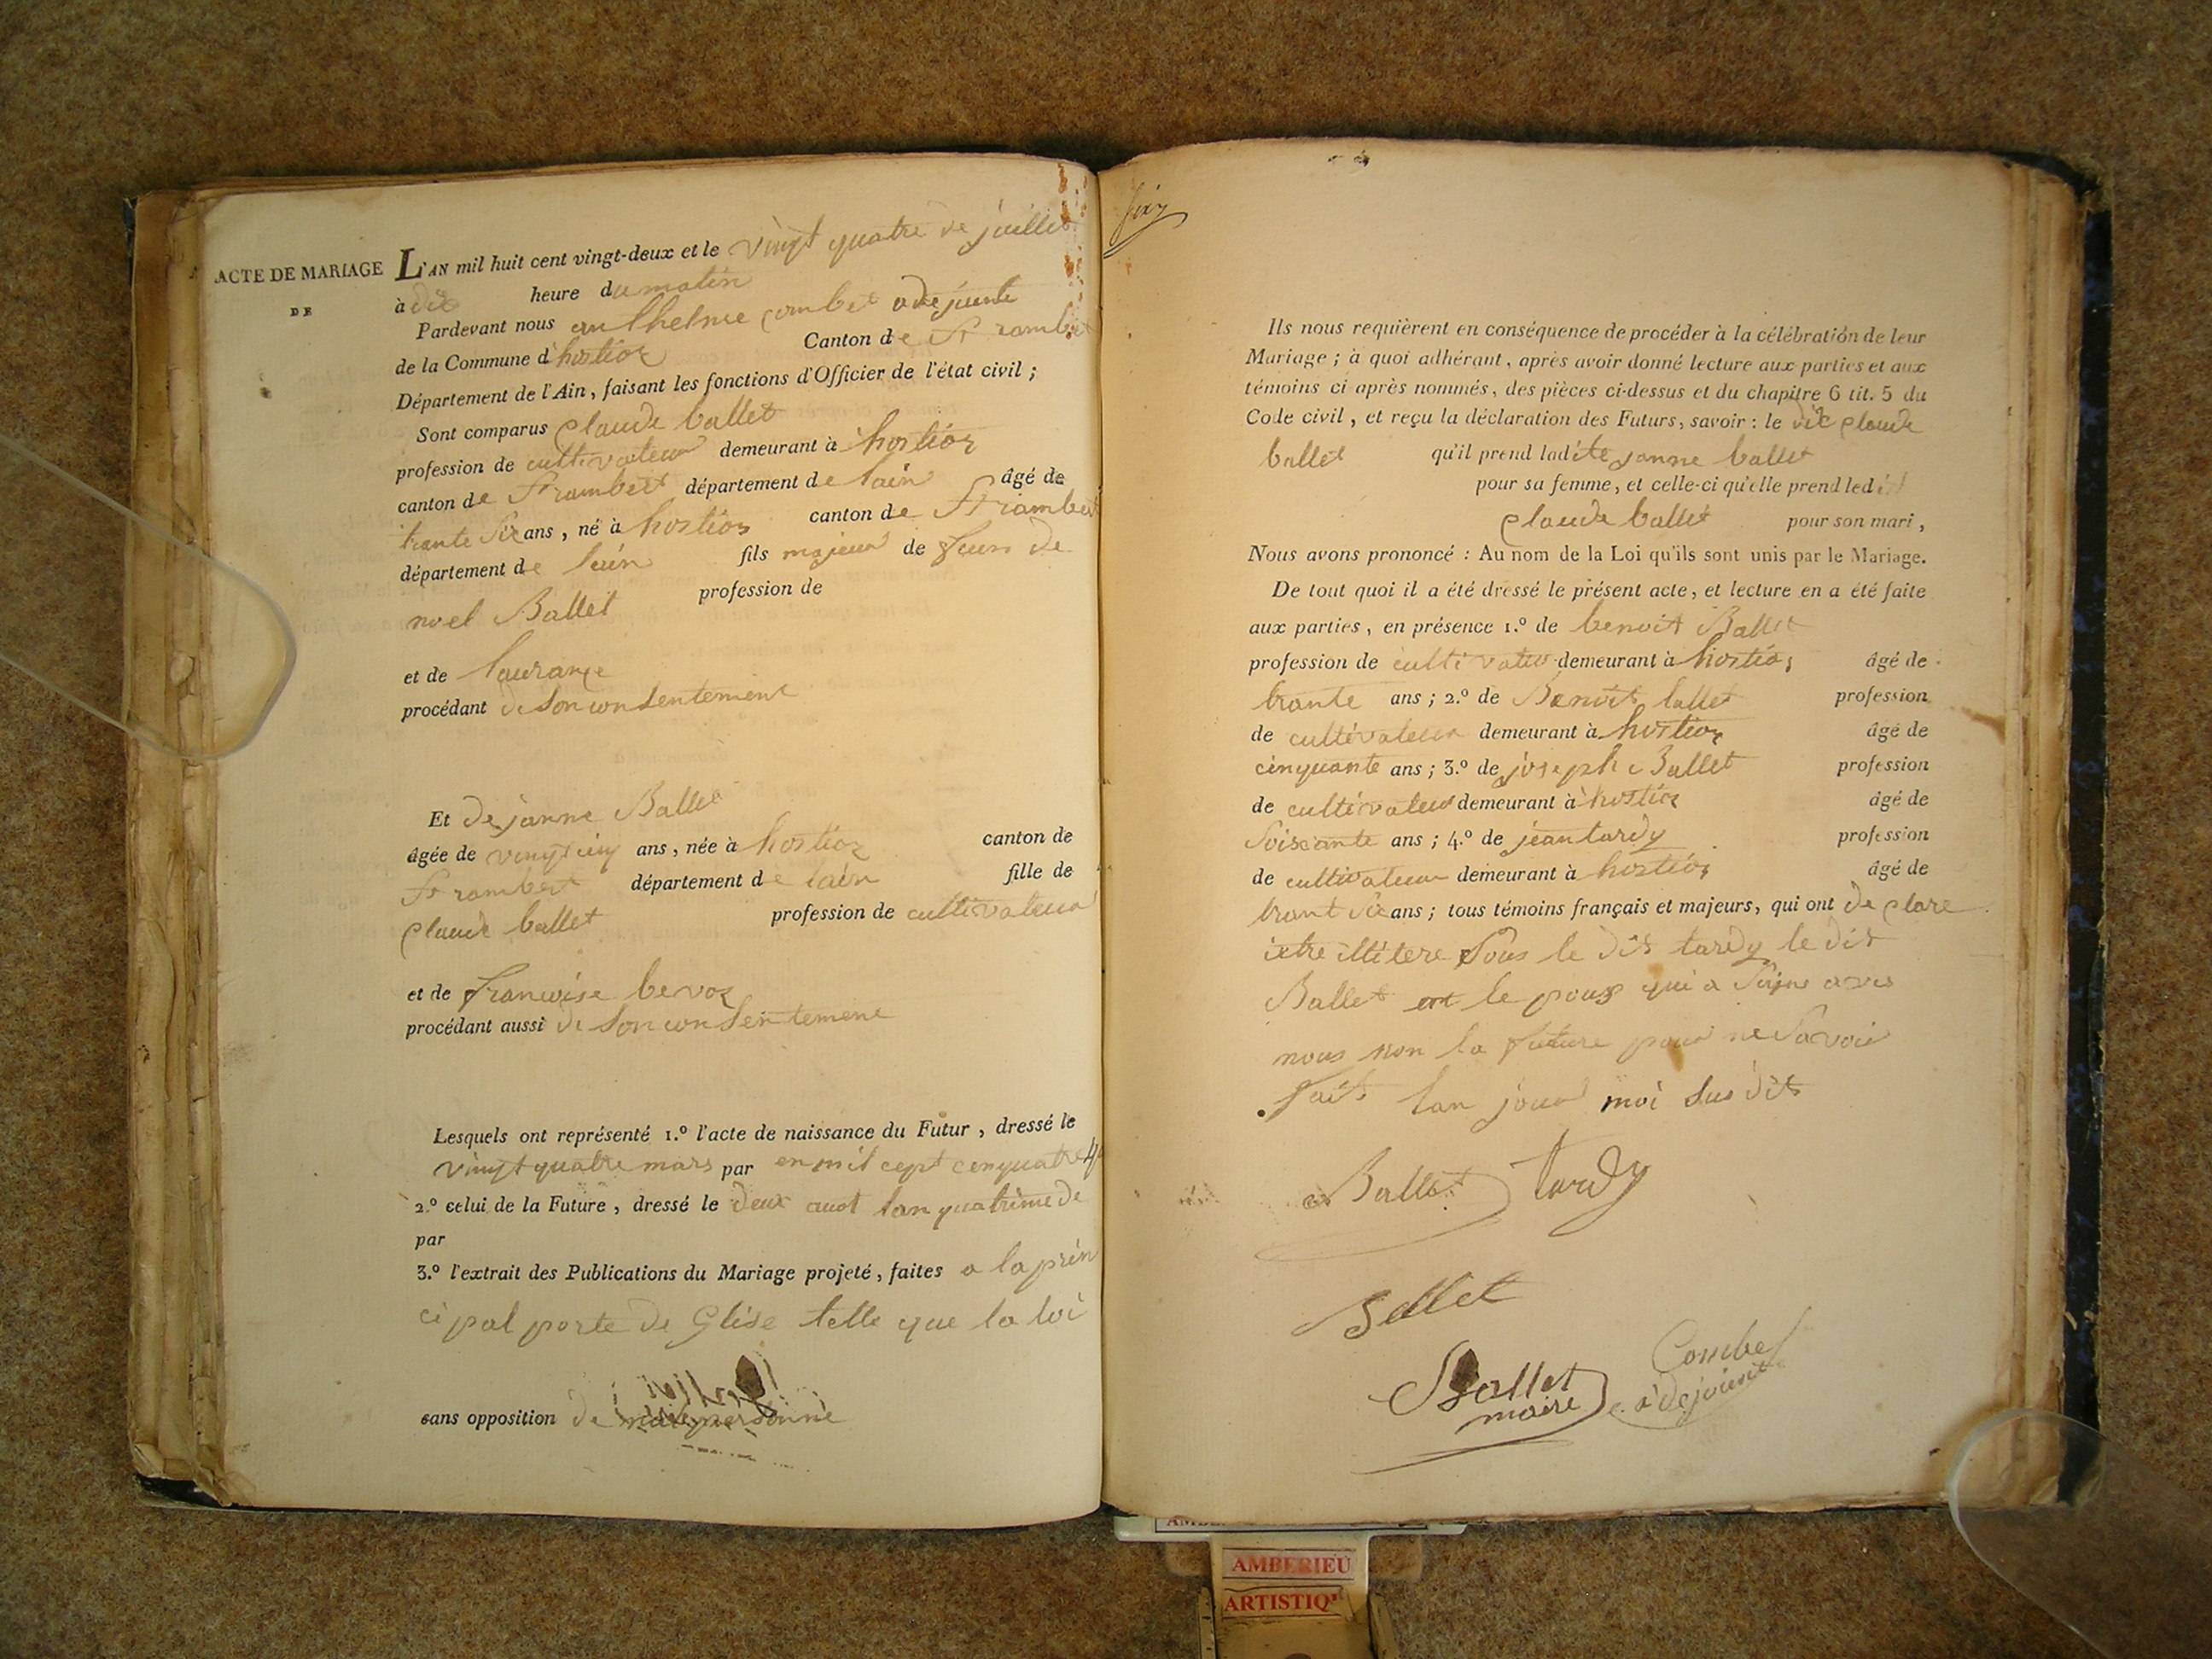 ACTE DE MARIAGE
DE
L'AN mil huit cent vingt-deux et le vingt quatre de juillet
à dix heure du matin
Pardevant nous anthelme combet adejoint
de la Commune d'hostioz Canton de St rambert
Département de l'Ain, faisant les fonctions d'Officier de l'état civil ;
Sont comparus Claude ballet
profession de cultivateur demeurant à hostioz
canton de St rambert département de lain âgé de
trante Six ans, né à hostioz canton de St rambert
département de lain fils majeur de feux de
noel Ballet profession de
et de laurance
procédant de Son consentement
Et de janne Ballet
âgée de vingt cinq ans, née à hostioz canton de
St rambert département de lain fille de
Claude ballet profession de cultivateur
et de francoise bevoz
procédant aussi de Son consentement
Lesquels ont représenté 1.º l'acte de naissance du Futur, dressé le
vingt quatre mars par en mil cept cenquatre
2.º celui de la Future, dressé le deux auot lan quatrime de
par
3.º l'extrait des Publications du Mariage projeté, faites a la prin
cipal porte de Glise telle que la loi
sans opposition de
Ils nous requièrent en conséquence de procéder à la célébration de leur
Mariage ; à quoi adhérant, après avoir donné lecture aux parties et aux
témoins ci après nommés, des pièces ci-dessus et du chapitre 6 tit. 5 du
Code civil, et reçu la déclaration des Futurs, savoir : le dit Claude
ballet qu'il prend ladite janne ballet
pour sa femme, et celle-ci qu'elle prend ledit
Claude ballet pour son mari,
Nous avons prononcé : Au nom de la Loi qu'ils sont unis par le Mariage.
De tout quoi il a été dressé le présent acte, et lecture en a été faite
aux parties, en présence 1.º de benoit Ballet
profession de cultivateur demeurant à hostioz âgé de
trante ans ; 2.º de Benoit ballet profession
de cultivateur demeurant à hostioz âgé de
cinquante ans ; 3.º de joseph Ballet profession
de cultivateur demeurant à hostioz âgé de
Soisante ans ; 4.º de jean tardy profession
de cultivateur demeurant à hostioz âgé de
trant Six ans ; tous témoins français et majeurs, qui ont declare
ietre illitere Sous le dit tardy le dit
Ballet le poux qui a Signe avec
nous non la future pour ne Savoir
fait lan jour moi Sus dit
Ballet tardy
Ballet
Ballet Combet
maire adejoint
AMBERIEU
ARTISTIQ